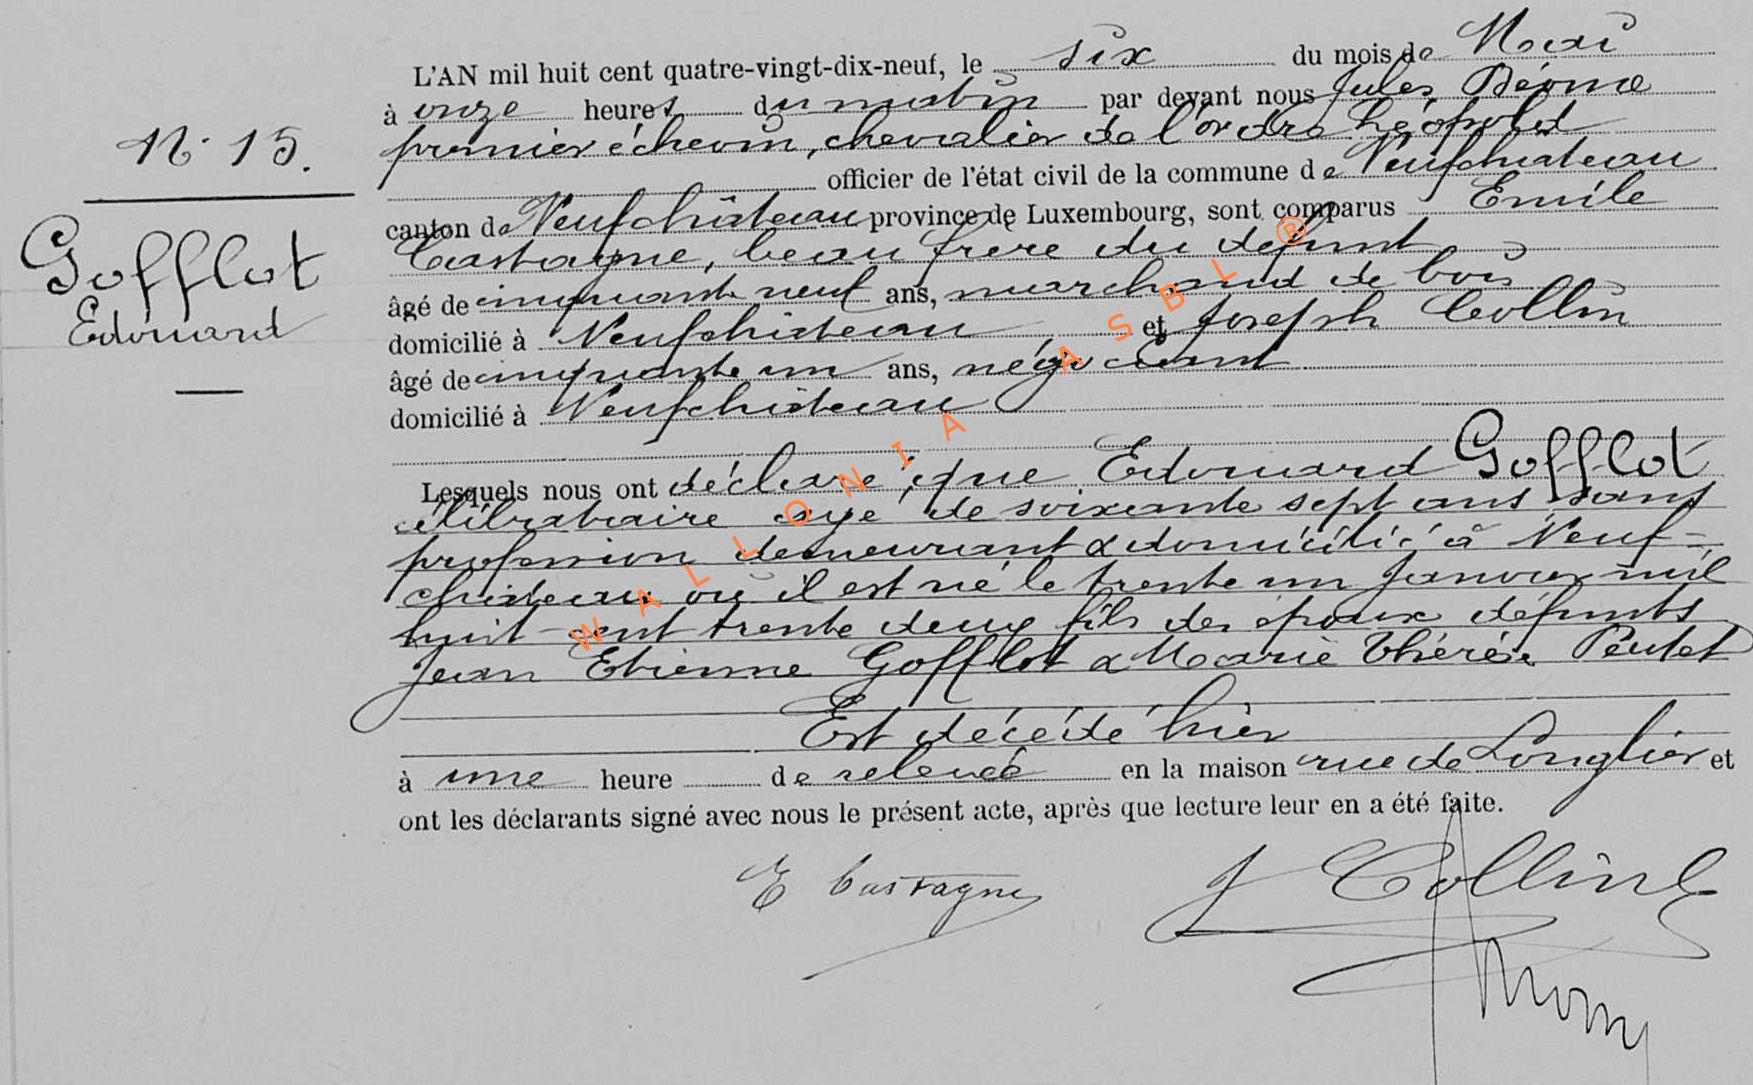 N° 15.
Gofflot
Edouard
L'AN mil huit cent quatre-vingt-dix-neuf, le six du mois de Mai
à onze heures du matin par devant nous Jules
premier échevin, chevalier de l'ordre Léopold
officier de l'état civil de la commune de Neufchateau
canton de Neufchâteau province de Luxembourg, sont comparus Emile
Castagne, beau frère du défunt
âgé de cinquante neuf ans, marchand de bois
domicilié à Neufchâteau et Joseph Collin
âgé de cinquante un ans, négociant
domicilié à Neufchâteau
Lesquels nous ont déclaré, que Edouard Gofflot
célibataire agé de soixante sept ans sans
profession demeurant & domicilié à Neuf-
château où il est né le trente un janvier mil
huit cent trente deux fils des époux défunts
Jean Etienne Gofflot & Marie Thérèse
Est décédé hier
à une heure de relevée en la maison rue de Longlier et
ont les déclarants signé avec nous le présent acte, après que lecture leur en a été faite.
E Castagne
J Collin
WALLONIA ASBL ®